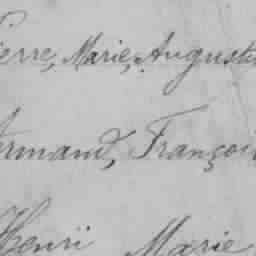 Pierre, Marie, Augustin
Armand, François
Henri Marie